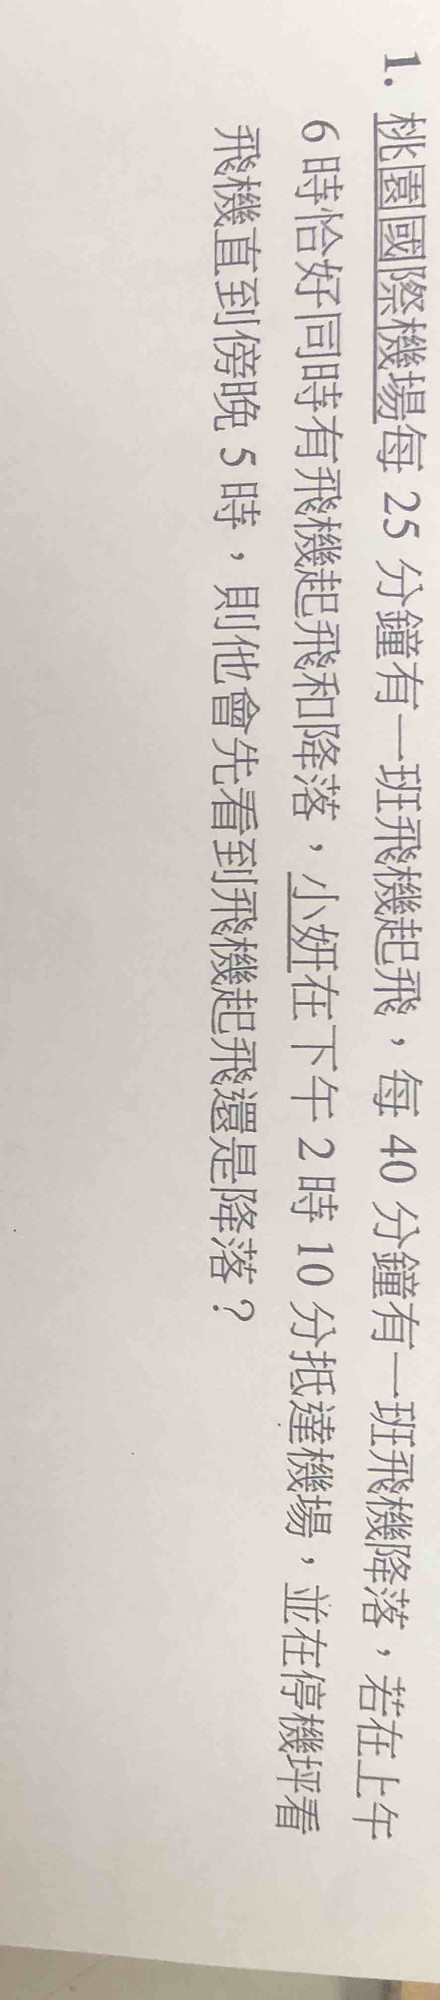 1. 桃園國際機場每 25 分鐘有一班飛機起飛，每 40 分鐘有一班飛機降落，若在上午
6 時恰好同時有飛機起飛和降落，小妍在下午 2 時 10 分抵達機場，並在停機坪看
飛機直到傍晚 5 時，則他會先看到飛機起飛還是降落？